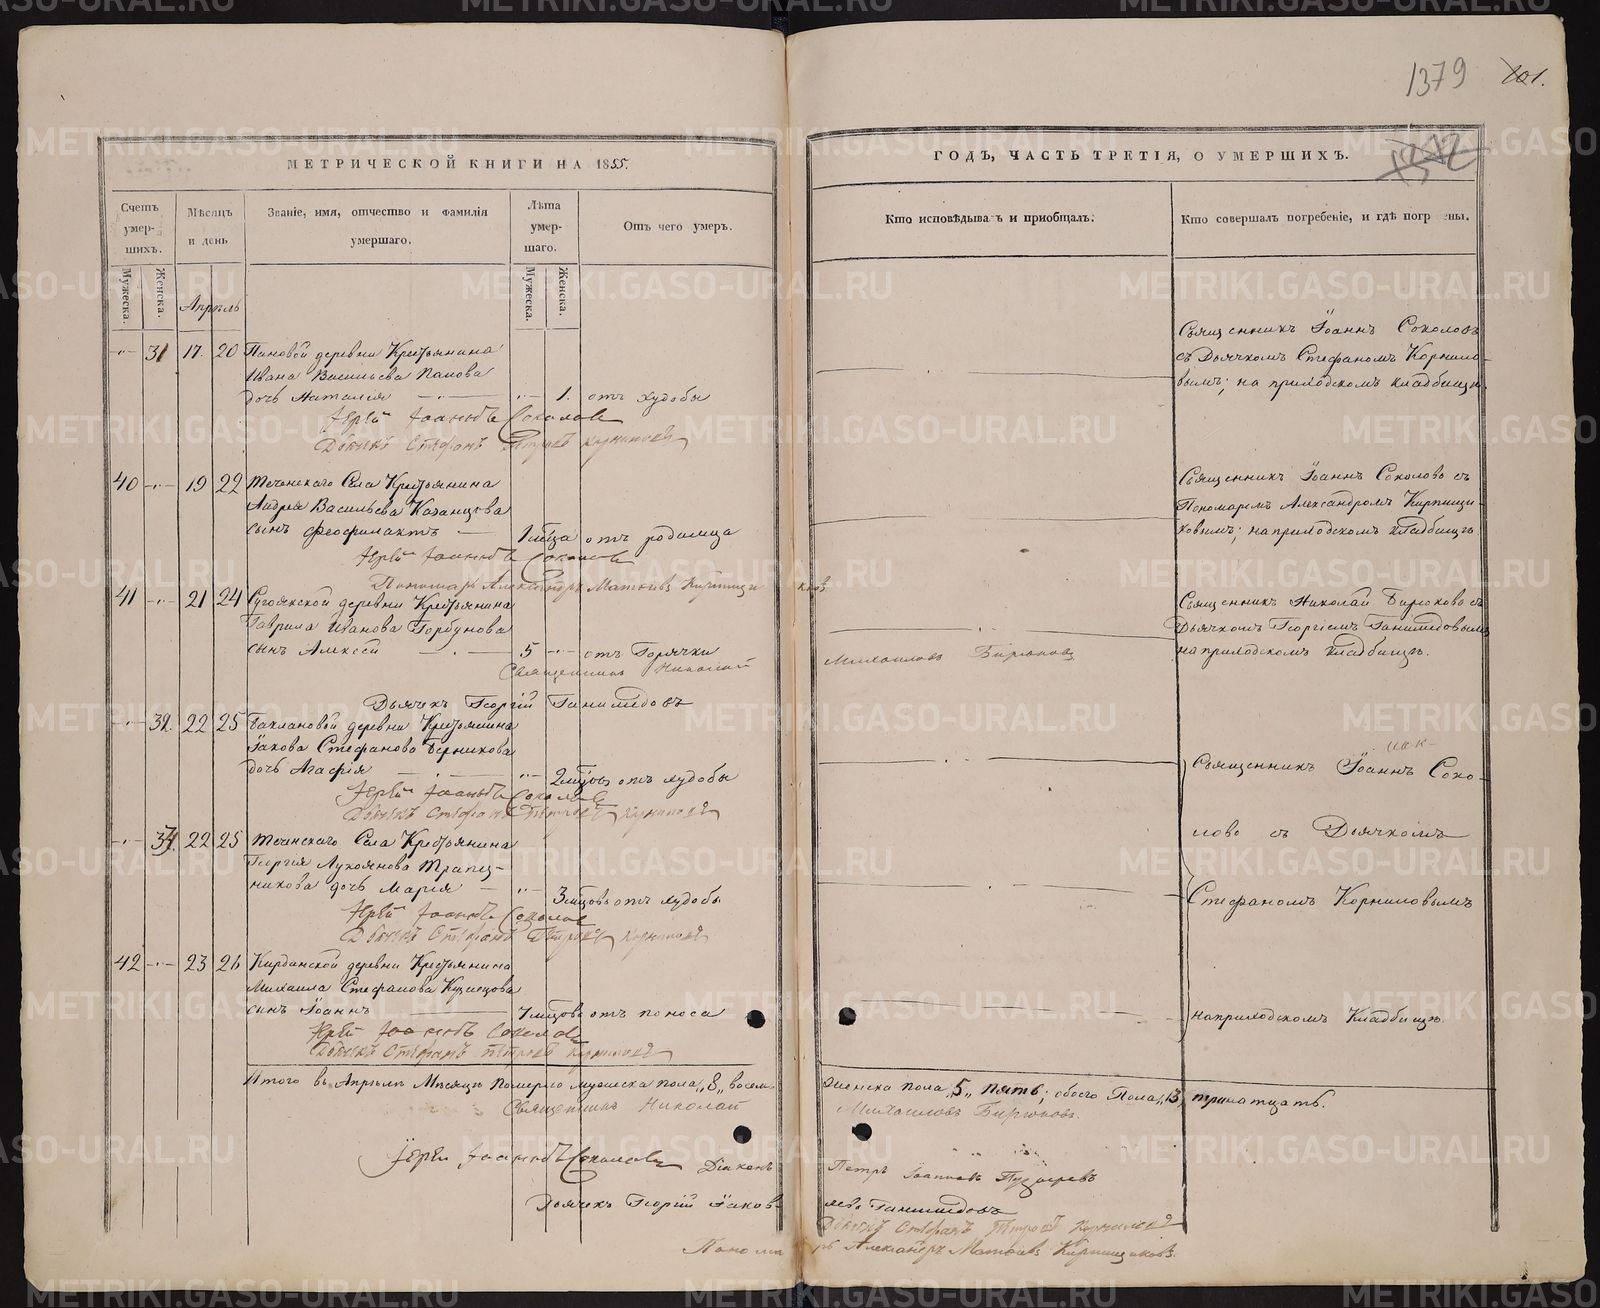 1379
МЕТРИЧЕСКОЙ КНИГИ НА 1855.
ГОДЪ, ЧАСТЬ ТРЕТІЯ, О УМЕРШИХЪ.
Счетъ умер-шихъ.
Мѣсяцъ и день
Званіе, имя, отчество и фамилія умершаго.
Лѣта умер-шаго.
Отъ чего умеръ.
Кто исповѣдывалъ и пріобщалъ.
Кто совершалъ погребеніе, и гдѣ погребены.
Мужеска.
Женска.
Мужеска.
Женска.
Апрѣль
31 17. 20 Пановой деревни Крестьянина
Ивана Васильева Панова
дочь Наталія 1. отъ худобы
Священникъ Іоаннъ Соколовъ
съ Дьячкомъ Стефаномъ Корнило-
вымъ; на приходскомъ кладбищѣ.
Іерей Іоаннъ Соколовъ
Дьячекъ Стефанъ Петровъ Корниловъ
40 19 22 Теченскаго Села Крестьянина
Андрея Васильева Казанцова
сынъ Феофилактъ 1 мѣсца отъ родимца
Священникъ Іоаннъ Соколовъ съ
Пономаремъ Александромъ Кирпищи-
ковымъ; на приходскомъ кладбищѣ
Іерей Іоаннъ Соколовъ
Пономарь Александръ Матѳіевъ Кирпищиковъ
41 21 24 Сугоякской деревни Крестьянина
Гаврила Иванова Горбунова
сынъ Алексей 5 отъ Горячки
Священникъ Николай Бирюковъ съ
Дьячкомъ Георгіемъ Ганимедовымъ
на приходскомъ кладбищѣ.
Священникъ Николай Михаиловъ Бирюковъ
Дьячекъ Георгій Ганимедовъ
22 25 Баклановой деревни Крестьянина
Іакова Стефанова Берникова
дочь Агафія 2 мѣсцовъ отъ худобы
Іерей Іоаннъ Соколовъ
Дьячекъ Стефанъ Петровъ Корниловъ
22 25 Теченскаго Села Крестьянина
Георгія Лукоянова Трапез-
никова дочь Марія 3 мѣсцовъ отъ худобы
Іерей Іоаннъ Соколовъ
Дьячекъ Стефанъ Петровъ Корниловъ
42 23 26 Кирданской деревни Крестьянина
Михаила Стефанова Кузнецова
сынъ Іоаннъ 7 мѣсцовъ отъ поноса
Священникъ Іоаннъ Соко-
ловъ съ Дьячкомъ
Стефаномъ Корниловымъ
на приходскомъ Кладбищѣ.
Іерей Іоаннъ Соколовъ
Дьячекъ Стефанъ Петровъ Корниловъ
Итого въ Апрѣлѣ Мѣсяцѣ Померло мужеска пола „8„ восемь женска пола „5„ пять; обоего Пола „13„ тринатцать.
Священникъ Николай Михаиловъ Бирюковъ.
Іерей Іоаннъ Соколовъ Діаконъ Петръ Іоанновъ Пузыревъ
Дьячекъ Георгій Іаковлевъ Ганимедовъ
Дьячекъ Стефанъ Петровъ Корниловъ
Пономарь Александръ Матѳіевъ Кирпищиковъ.
METRIKI.GASO-URAL.RU